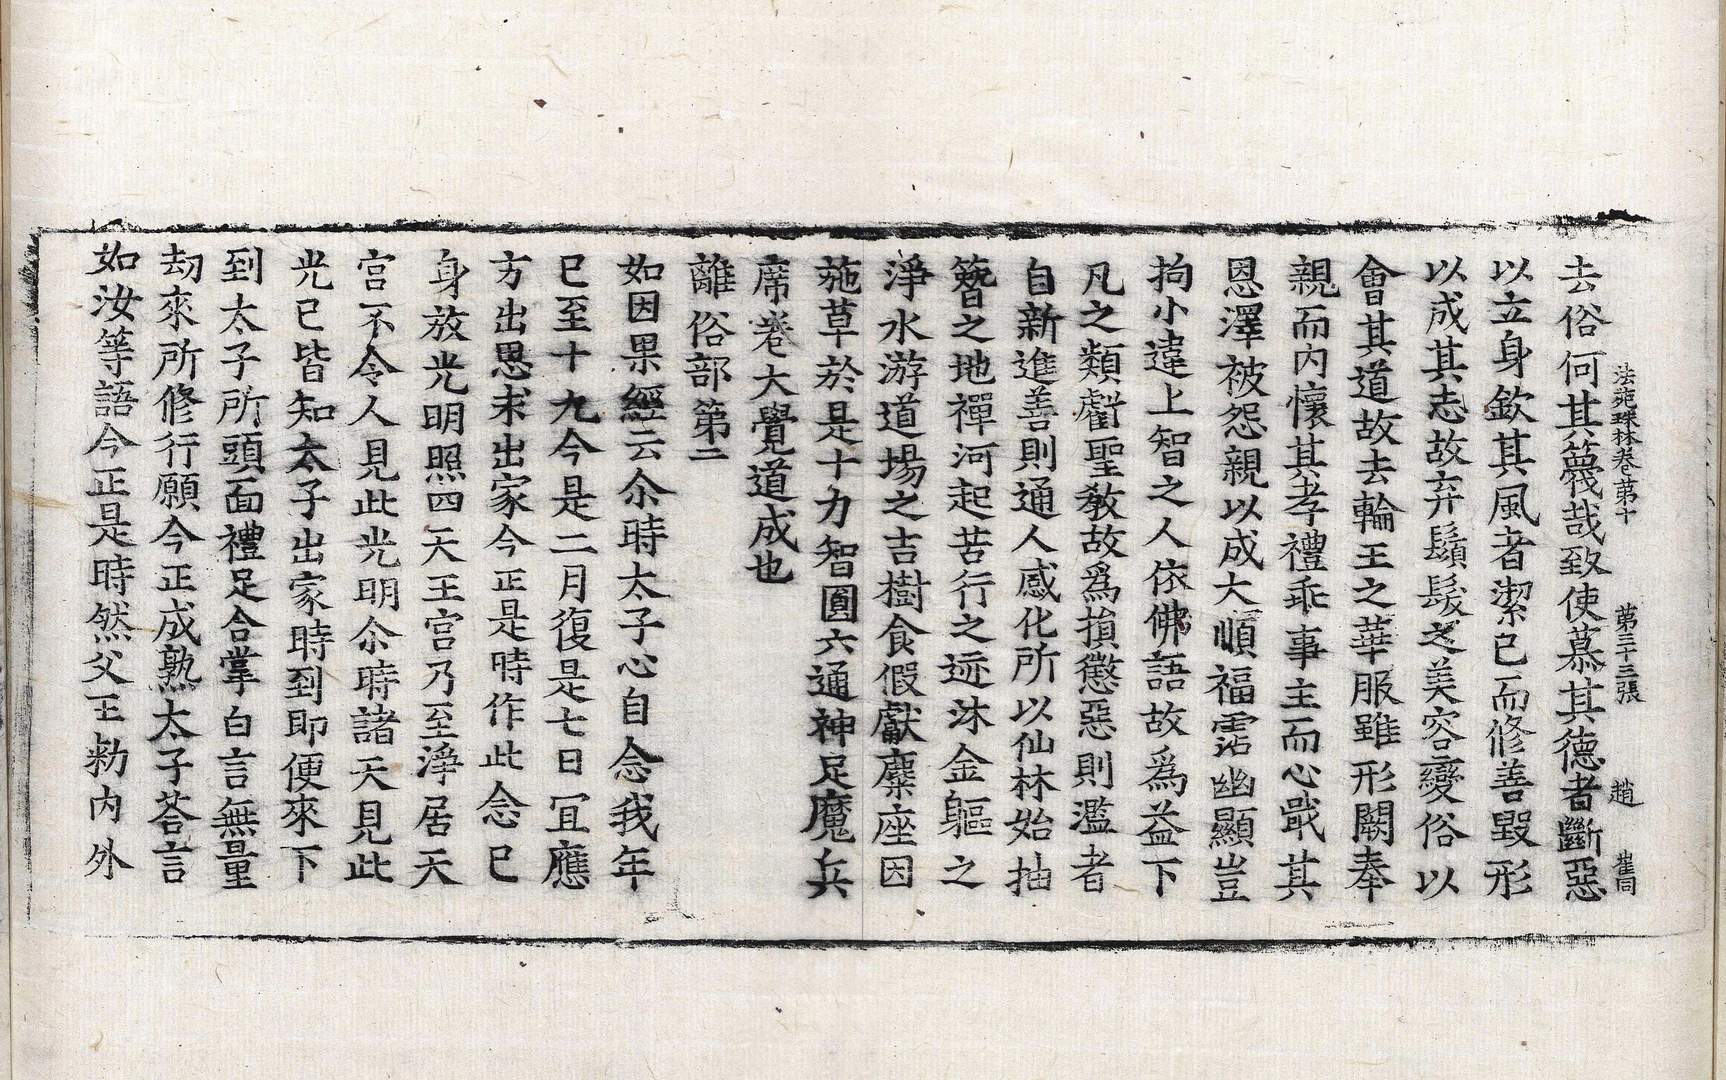 法苑珠林卷第十 第三十三張 趙 崔同
去俗何其篾哉致使慕其德者斷惡
以立身欽其風者潔已而修善毀形
以成其志故弃鬚髮之美容變俗以
會其道故去輪王之華服雖形闕奉
親而内懷其孝禮乖事主而心戢其
恩澤被怨親以成大順福霑幽顯豈
拘小違上智之人依佛語故爲益下
凡之類虧聖教故爲損懲惡則濫者
自新進善則通人感化所以仙林始抽
簪之地禪河起苦行之迹沐金軀之
淨水游道場之吉樹食假獻糜座因
施草於是十力智圓六通神足魔兵
席卷大覺道成也
離俗部第二
如因果經云尒時太子心自念我年
已至十九今是二月復是七日冝應
方出思求出家今正是時作此念已
身放光明照四天王宫乃至淨居天
宫不令人見此光明尒時諸天見此
光已皆知太子出家時到即便來下
到太子所頭面禮足合掌白言無量
劫來所修行願今正成熟太子荅言
如汝等語今正是時然父王勑内外